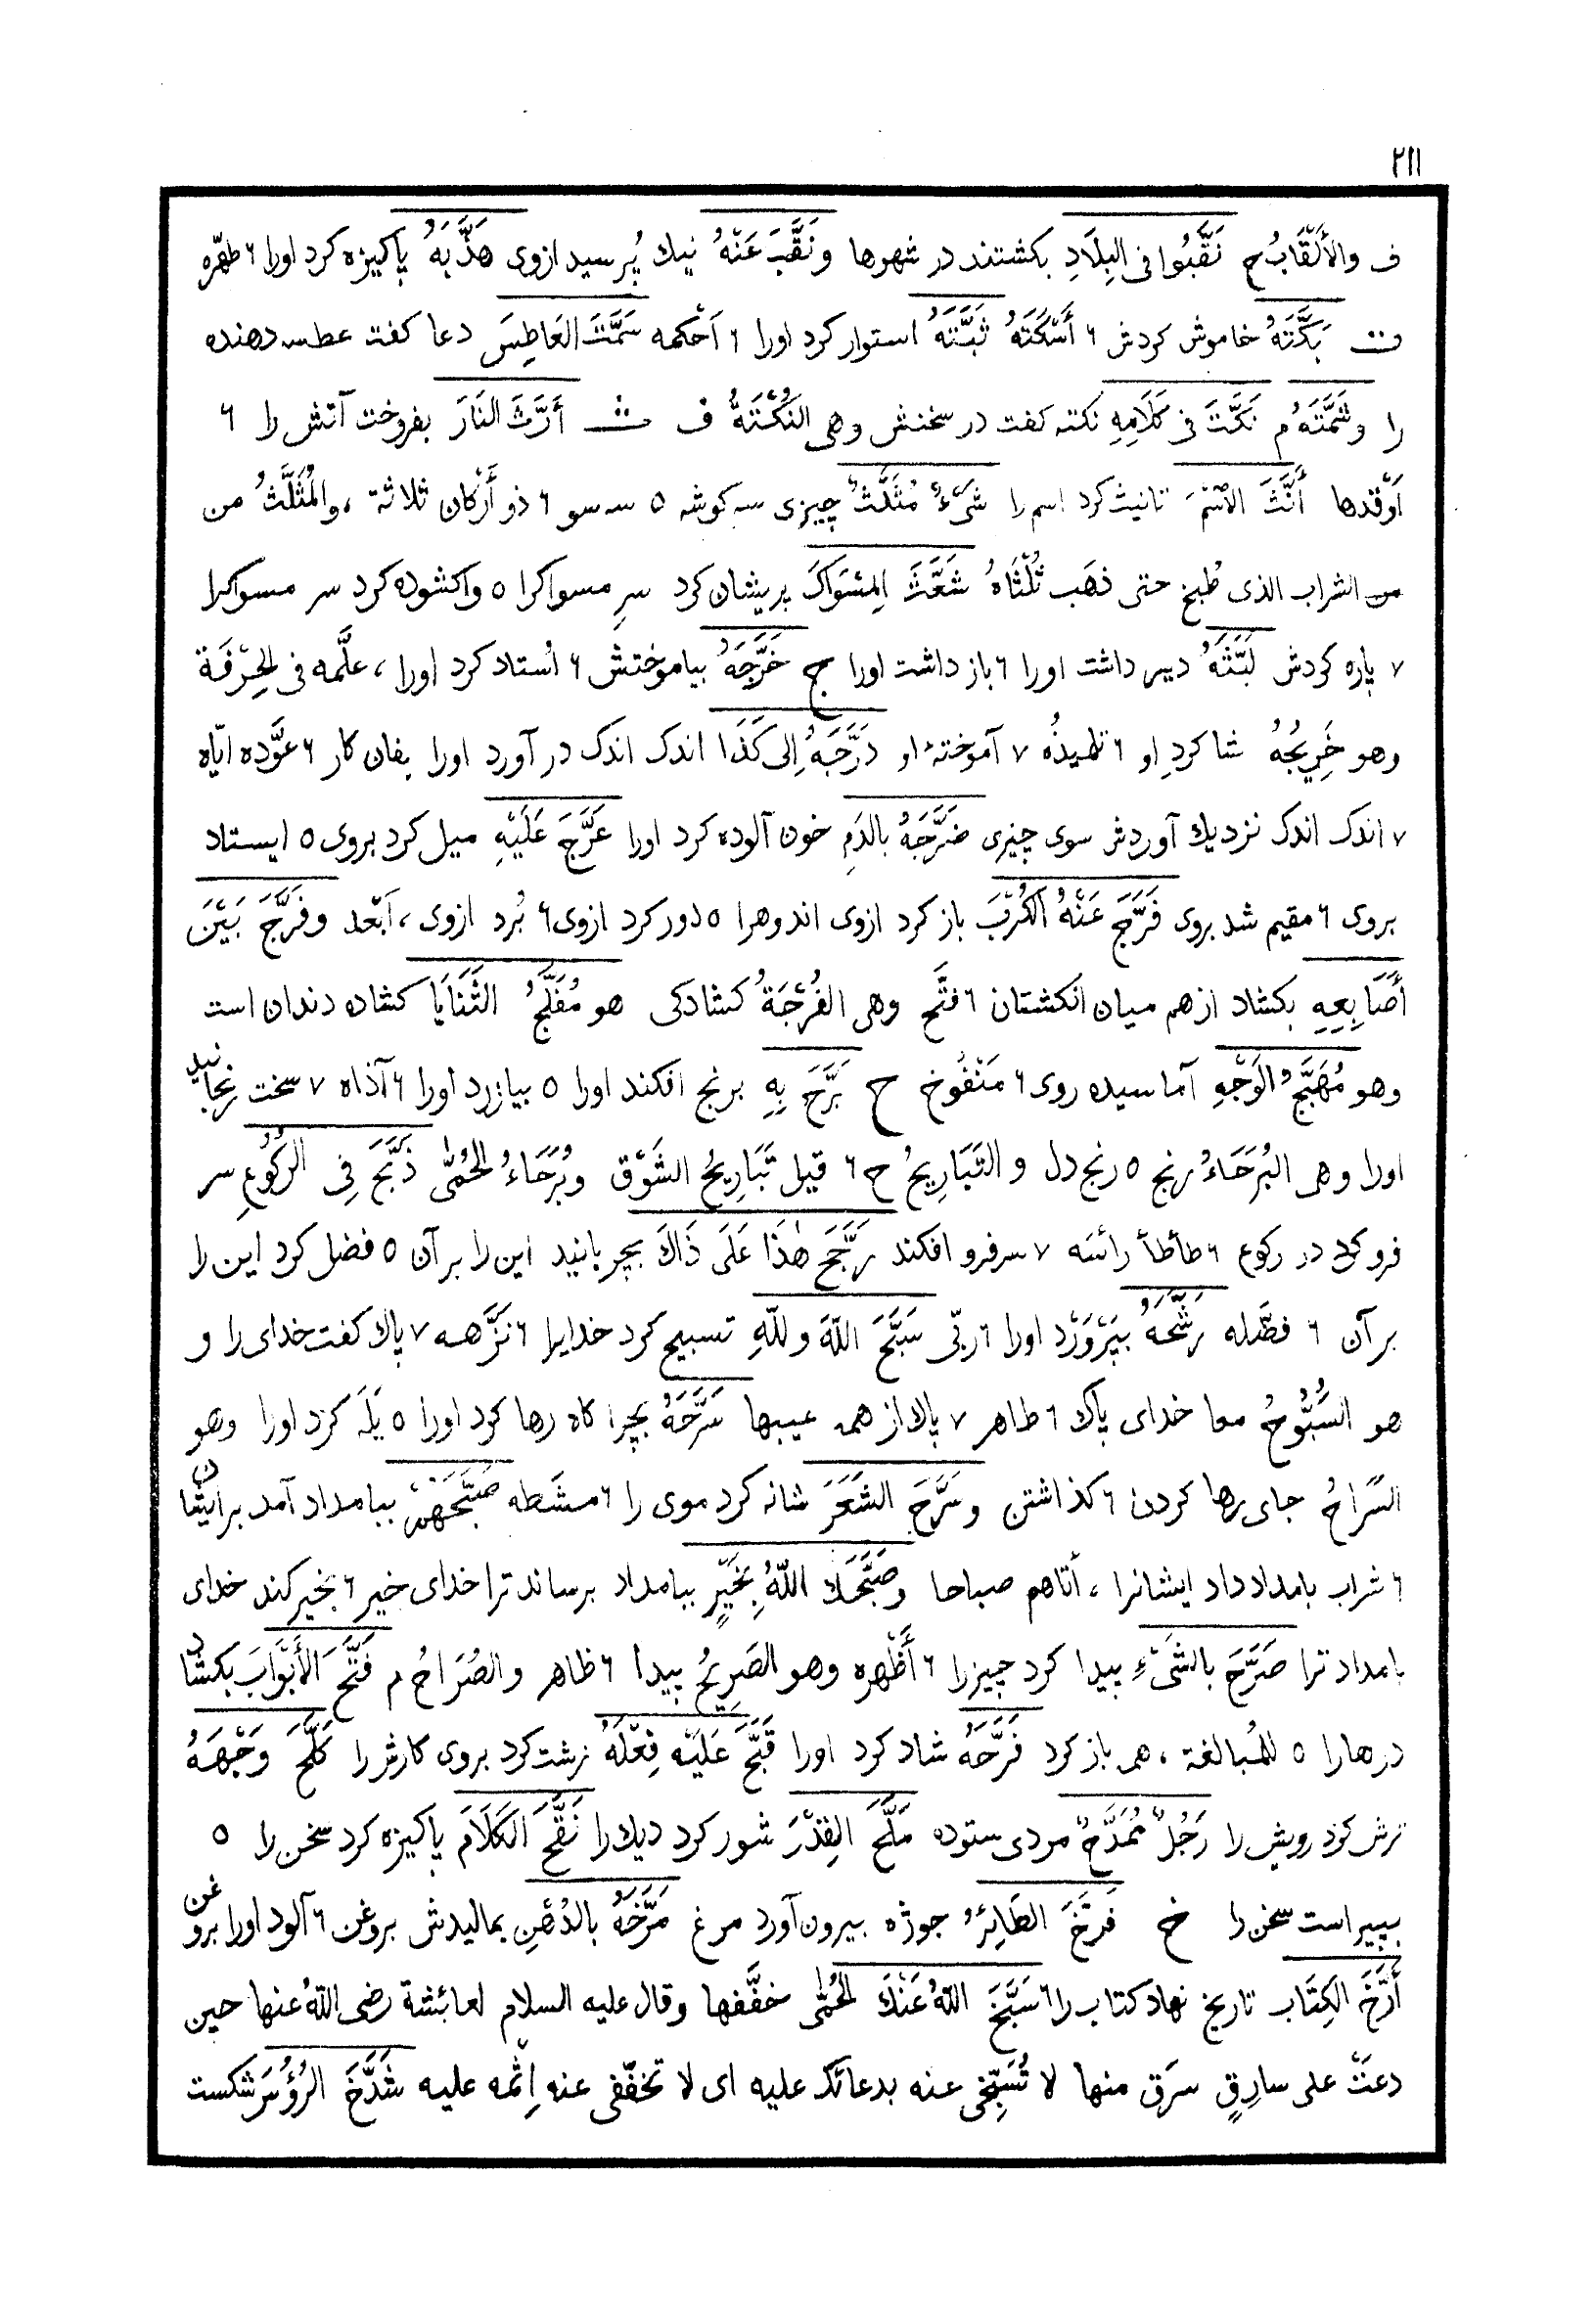 ٢١١
ف والأَلْقَابُ ح نَقَّبُوا فى البِلَادِ بكشتند در شهرها ونَقَّبَ عَنْهُ نيك پُرسيد ازوى هَذَّبَهُ پاكيزه كرد اورا ٦ طهّره
ت بَكَّتَهُ خاموش كردش ٦ أَسْكَتَهُ ثَبَّتَهُ استوار كرد اورا ٦ اَحْكمه سَمَّتَ العَاطِسَ دعا كفت عطسه دهنده
را وشَمَّتَهُ م نَكَّتَ فى كَلَامِهِ نكته كفت در سخنش وهى النُكْتَةُ ف ث أَرَّثَ النَارَ بفروخت آتش را ٦
اَوْقدها أَنَّثَ الاسْمَ تانيث كرد اسم را شَىْءٌ مُثَلَّثٌ چيزى سه كوشه ٥ سه سو ٦ ذو أَرْكان ثلاثة ، والمُثَلَّثُ من
من الشراب الذى طُبخ حتى ذهَب ثُلْثَاهُ شَعَّثَ المِسْوَاكَ پريشان كرد سرِ مسواكرا ٥ واكشوده كرد سر مسواكرا
٧ پاره كردش لَبَّثَهُ دير داشت اورا ٦ باز داشت اورا ج خَرَّجَهُ بياموختش ٦ اُستاد كرد اورا ، علَّمه فى الحِرْفَة
وهو خَرِيجُهُ شاكردِ او ٦ تلميذُه ٧ آموختهٔ او دَرَّجَهُ اِلى كَذَا اندك اندك در آورد اورا بفان كار ٦ عوَّده ايّاه
٧ اندك اندك نزديك آوردش سوى چيزى ضَرَّجَهُ بالدَمِ خون آلوده كرد اورا عَرَّجَ عَلَيْهِ ميل كرد بروى ٥ ايستاد
بروى ٦ مقيم شد بروى فَرَّجَ عَنْهُ الكُرْبَ باز كرد ازوى اندوهرا ٥ دور كرد ازوى ٦ بُرد ازوى ، اَبْعَد وفَرَّجَ بَيْنَ
أَصَابِعِهِ بكشاد ازهم ميان انكشتان ٦ فتَّح وهى الفُرْجَةُ كشادكى هو مُفَلَّجُ الثَنَايَا كشاده دندان است
وهو مُهَبَّجُ الوَجْهِ آماسيده روى ٦ مَنْفُوخ ح بَرَّحَ بِهِ برنج افكند اورا ٥ بيازرد اورا ٦ آذاه ٧ سخت رنجانيد
اورا وهى البُرَحَاءُ رنج ٥ رنج دل و التَبَارِيحُ ح ٦ قيل تَبَارِيحُ الشَوْق وبُرَحَاءُ الحُمَّى ذَبَّحَ فِى الرُكُوعِ سر
فرو كرد در ركوع ٦ طأطأ رأسَه ٧ سرفرو افكند رَجَّحَ هٰذَا عَلَى ذَاكَ بچربانيد اين را بر آن ٥ فضل كرد اين را
بر آن ٦ فضَّله رَشَّحَهُ بپَرْوَرْد اورا ٦ ربّى سَبَّحَ اللّٰهَ وللّٰهِ تسبيح كرد خدايرا ٦ نَزَّهه ٧ پاك كفت خداى را و
هو السُبُّوحُ معا خداى پاك ٦ طاهر ٧ پاك از همه عيبها سَرَّحَهُ بچرا كاه رها كرد اورا ٥ يَله كرد اورا وهو
السَرَاحُ جاى رها كردن ٦ كذاشتن وسَرَّحَ الشَعَرَ شانه كرد موى را ٦ مشَطه صَبَّحَهُمْ ببامداد آمد برايشان
٦ شراب بامداد داد ايشانرا ، أتاهم صباحا وصَبَّحَكَ اللّٰهُ بِخَيْرٍ ببامداد برساند ترا خداى خير ٦ بخير كند خداى
بامداد ترا صَرَّحَ بالشَىْءِ پيدا كرد چيزرا ٦ أَظْهره وهو الصَرِيحُ پيدا ٦ ظاهر والصُرَاحُ م فَتَّحَ الأَبْوَابَ بكشاد
درهارا ٥ للمُبالغة ، هى باز كرد فَرَّحَهُ شاد كرد اورا قَبَّحَ عَلَيْهِ فِعْلَهُ زشت كرد بروى كارش را كَلَّحَ وَجْهَهُ
ترش كرد رويش را رَجُلٌ مُمَدَّحٌ مردى ستوده مَلَّحَ القِدْرَ شور كرد ديك را نَقَّحَ الكَلَامَ پاكيزه كرد سخن را ٥
بپيراست سخن را خ فَرَّخَ الطَائِرُ جوژه بيرون آورد مرغ مَرَّخَهُ بالدُهْنِ بماليدش بروغن ٦ آلود اورا بروغن
أَرَّخَ الكِتَاب تاريخ نهاد كتاب را ٦ سَبَّخَ اللّٰهُ عَنْكَ الحُمَّى خفَّفها وقال عليه السلام لعائشة رضى اللّٰه عنها حين
دعتْ على سارِقٍ سرَق منها لا تُسَبِّخى عنه بدعائك عليه اى لا تخفّفى عنه اِثْمه عليه شَدَّخَ الرُؤُسَ شكست